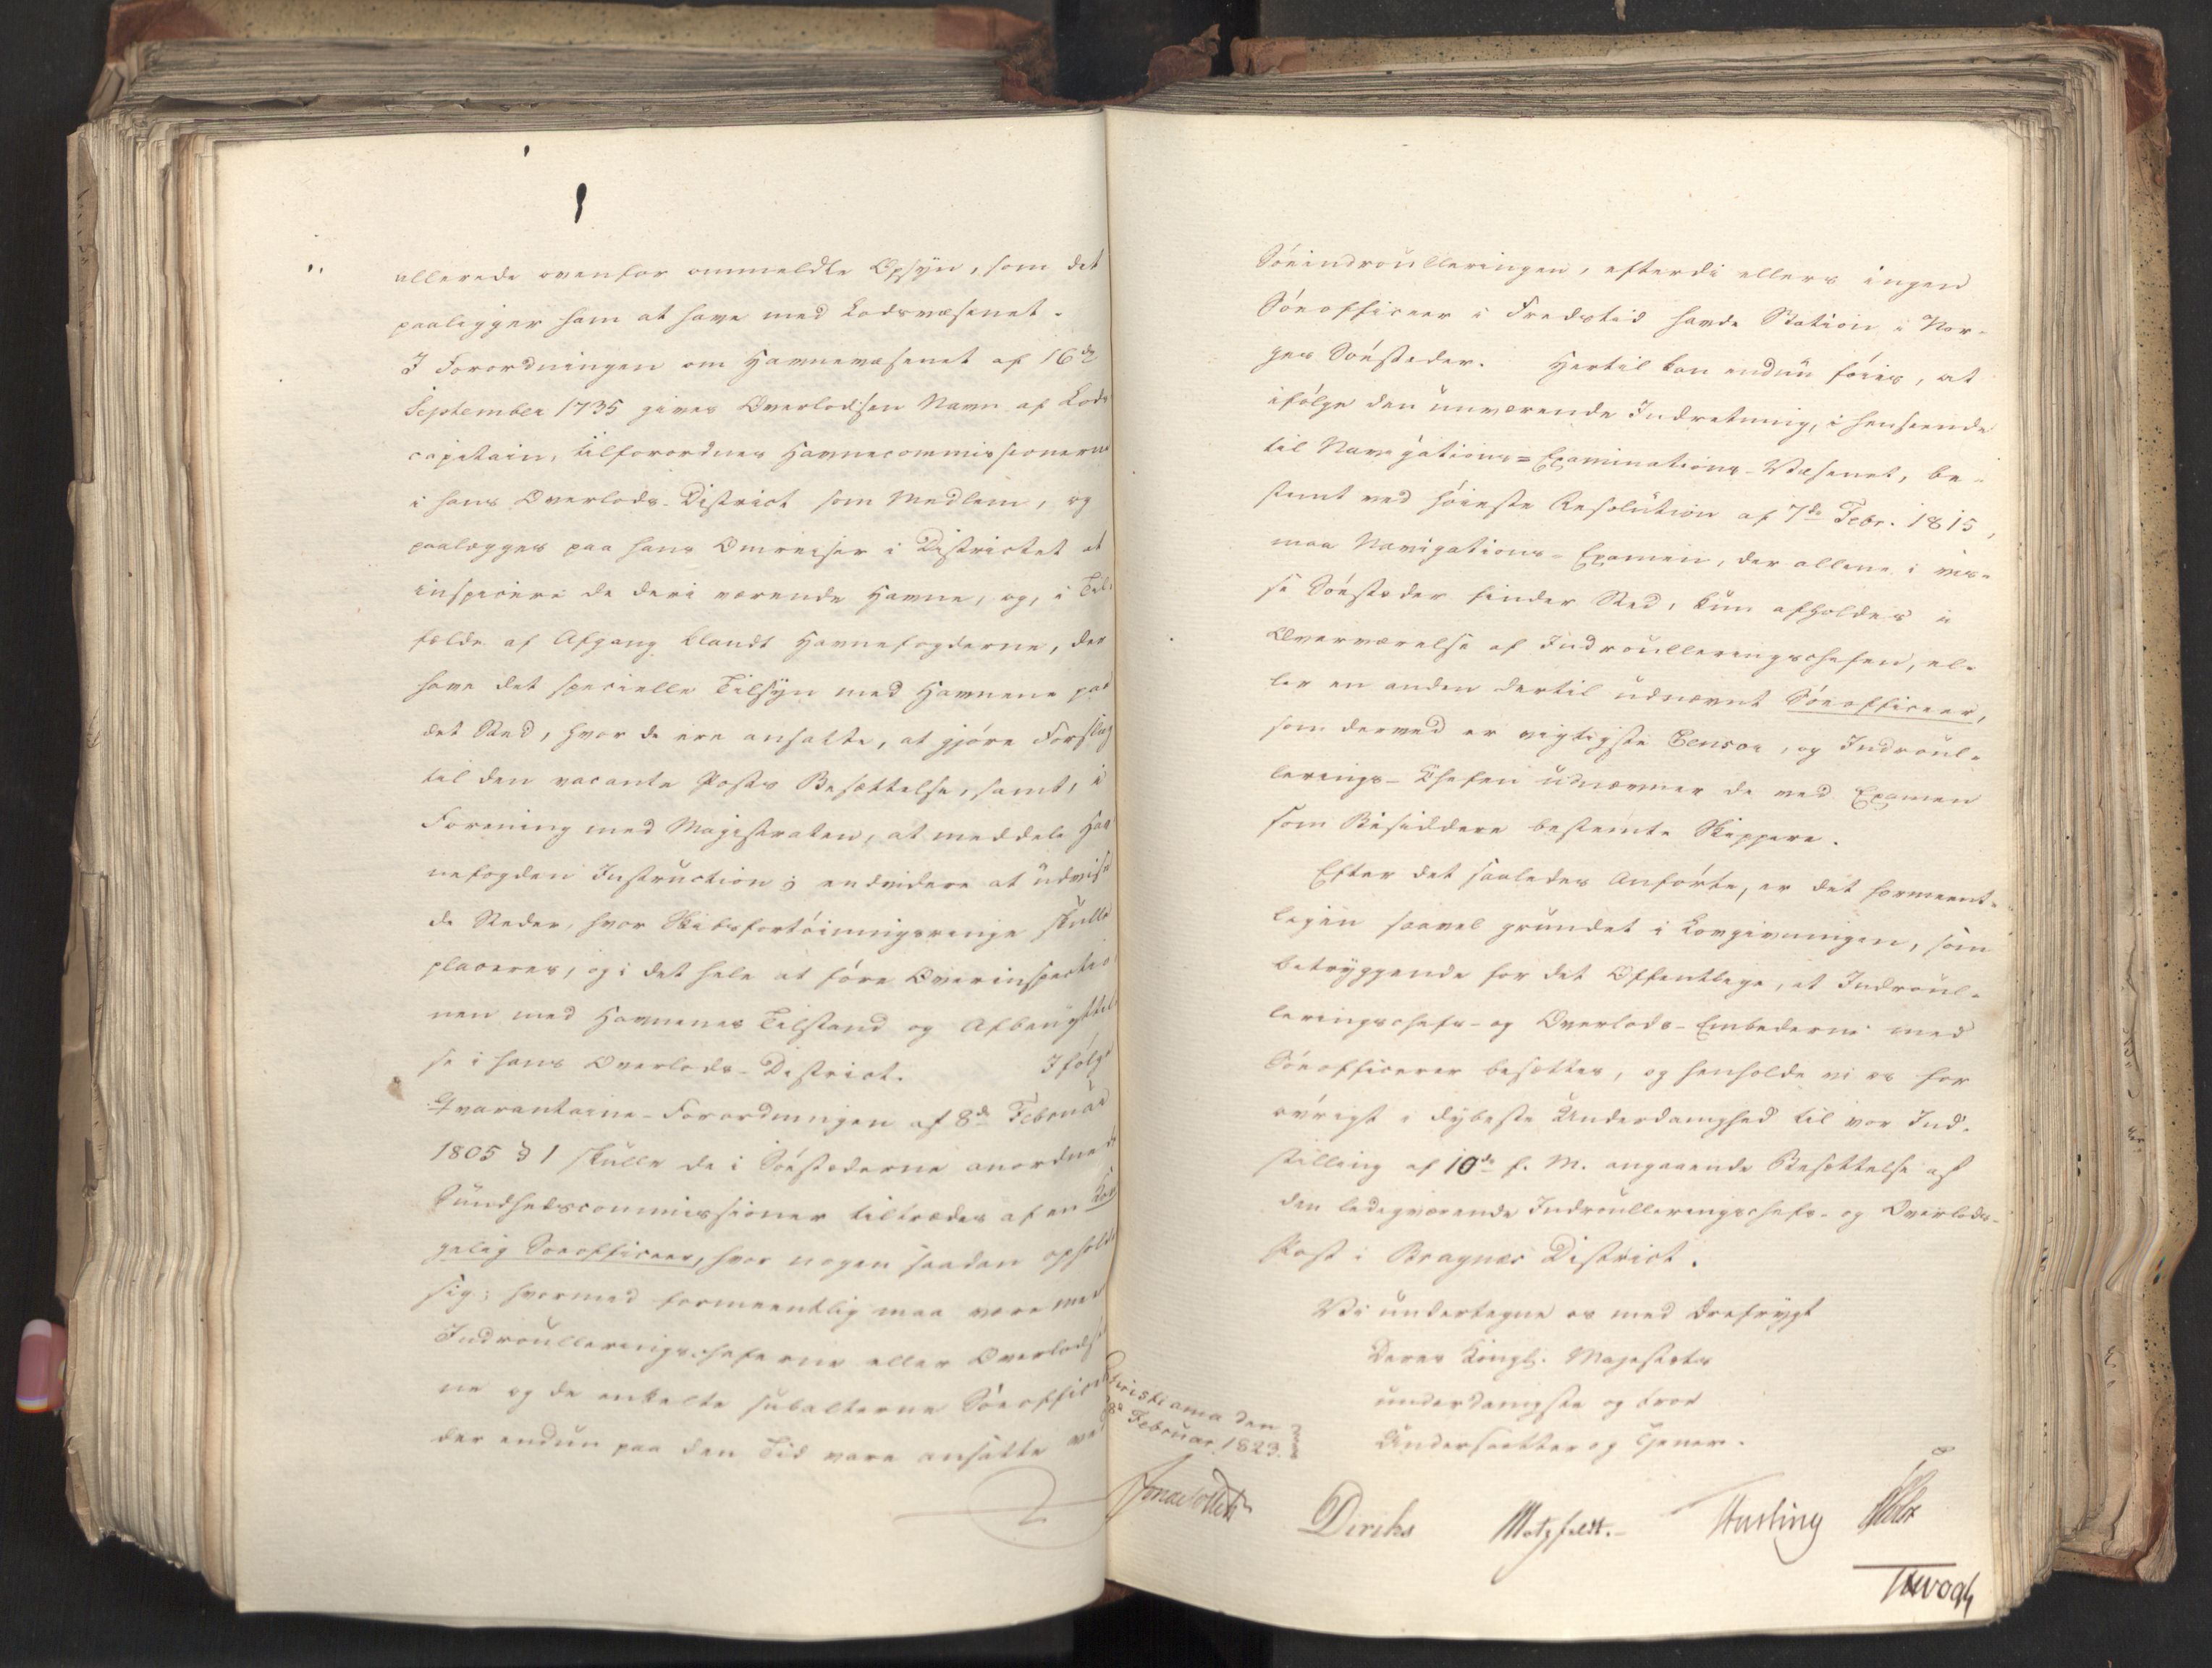 allerede ovenfor ommeldte Opsÿn, som det
paaligger ham at have med Lodsvæsenet.
I Forordningen om Havnevæsenet af 16de
September 1735 gives Overlodsen Navn af Lods
capitain, tilforordnes Havnecommissionerne
i hans Overlods-District som Medlem, og
paalægges paa hans Omreiser i Districtet at
inspicere de deri værende Havne, og, i Til-
fælde af Afgang blandt Havnefogderne, der
have det specielle Tilsÿn med Havnene paa
det Sted, hvor de ere ansatte, at gjöre Forslag
til den vacante Posts Besættelse, samt, i
Forening med Magistraten, at meddele Hav
nefogden Instruction; endvidere at udvise
de Steder, hvor Skibsfortöiningsringe skulle
placeres, og i det hele at före Overinspectio
nen med Havnenes Tilstand og Afbenÿttel
se i hans Overlods-District. Ifölge
Qvarantaine-Forordningen af 8de Februar
1805 § 1 skulle de i Söestæderne anordnede
Sundhedscommissioner tiltrædes af en Kon
gelig Soeofficeer, hvor nogen saadan opholdt
sig; hvormed formeentlig maa være meent
Indroulleringscheferne eller Overlodser
ne og de enkelte subalterne Söeofficerer
der endnu paa den Tid vare ansatte ved
Söeindroulleringen, efterdi ellers ingen
Söeofficeer i Fredstid havde Station i Nor-
ges Söestæder. Hertil kan endnu föies, at
ifölge den nuværende Indretning, i henseende
til Navigations-Examinations-Væsenet, be-
stemt ved höieste Resolution af 7de Febr. 1815,
maa Navigations-Examen, der allene i vis-
se Söestæder finder Sted, kun afholdes i
Overværelse af Indroulleringschefen, el-
ler en anden dertil udnævnt Söeofficeer,
som derved er vigtigste Censor, og Indroul-
lerings-Chefen udnævner de ved Examen
som Bisiddere bestemte Skippere.
Efter det saaledes Anförte, er det formeent-
ligen saavel grundet i Lovgivningen, som
betrÿggende for det Offentlige, at Indroul-
leringschefs- og Overlods-Embederne med
Söeofficerer besættes, og henholde vi os for
övrigt i dÿbeste Underdanighed til vor Ind-
stilling af 10de f. M. angaaende Besættelse af
den ledigværende Indroulleringschefs- og Overlods-
Post i Bragnæs District.
Vi undertegne os med Ærefrÿgt
Deres Kongl. Majestæts
underdanigste og troe
Undersaatter og Tjenere.
Christiania den
8de Februar 1823.
Jonas Collett
Diriks Motzfeldt. Fasting